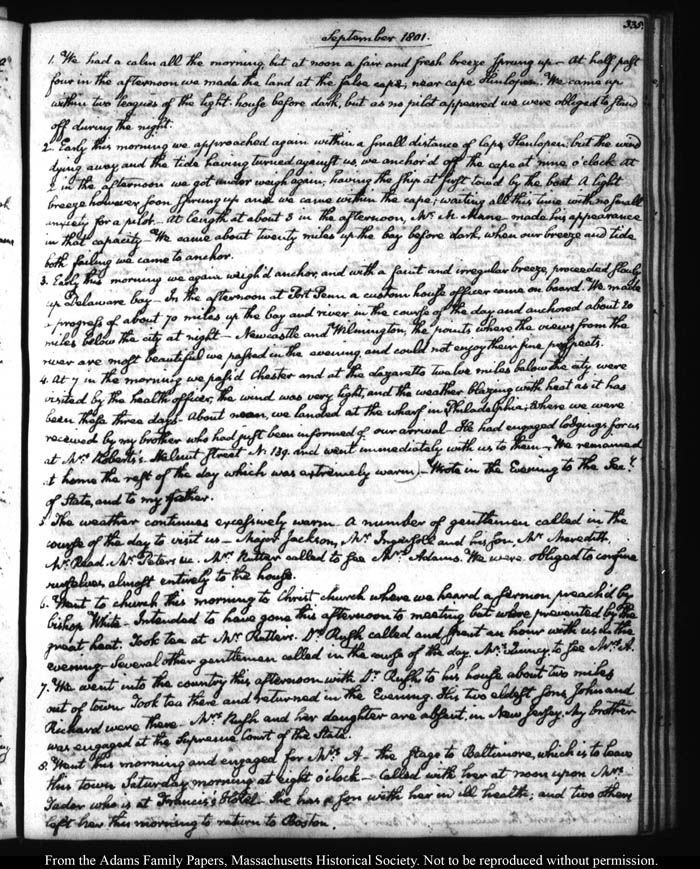 335.
September 1801.
1. We had a calm all the morning, but at noon a fair and fresh breeze sprung up — At half past
four in the afternoon we made the land at the false cape, near cape Henlopen. We came up
within two leagues of the light-house before dark, but as no pilot appeared we were obliged to stand
off during the night.
2. Early this morning we approached again within a small distance of Cape Henlopen, but the wind
dying away and the tide having turned against us, we anchor'd off the cape at nine o'clock. At
2 in the afternoon we got under weigh again, having the ship at first tow'd by the boat. A light
breeze however soon sprung up and we came within the cape; waiting all this time with no small
anxiety for a pilot — At length at about 3 in the afternoon, Mr. M. Mane made his appearance
in that capacity — We came about twenty miles up the bay before dark, when our breeze and tide
both failing we came to anchor.
3. Early this morning we again weigh'd anchor, and with a faint and irregular breeze, proceeded slowly
up Delaware bay — In the afternoon at Port Penn a custom house officer came on board. We made
progress of about 70 miles up the bay and river in the course of the day and anchored about 20
miles below the city at night — Newcastle and Wilmington, the points where the views from the
river are most beautiful we passed in the evening and could not enjoy their fine prospects.
4. At 7 in the morning we pass'd Chester and at the lazaretto twelve miles below the city were
visited by the health officer; the wind was very light, and the weather blazing with heat as it has
been these three days — About noon, we landed at the wharf in Philadelphia; where we were
received by my brother who had just been informed of our arrival — He had engaged lodgings for us
at Mrs. Roberts's Walnut Street N. 139. and went immediately with us to them — We remained
at home the rest of the day which was extremely warm — Wrote in the Evening to the Secy.
of State, and to my father.
5. The weather continues excessively warm. A number of gentlemen called in the
course of the day to visit us — Major Jackson, Mr. Ingersoll and his son, Mr. Meredith,
Mr. Read, Mr. Peters &c. Mrs. Rutter called to see Mrs. Adams. We were obliged to confine
ourselves almost entirely to the house.
6. Went to church this morning to Christ church where we heard a sermon preach'd by
bishop White — Intended to have gone this afternoon to meeting but were prevented by the
great heat. Took tea at Mr. Rutters. Dr. Rush called and spent an hour with us in the
evening. Several other gentlemen called in the course of the day. Mr. Quincy to see Mrs. A.
7. We went into the country this afternoon with Dr. Rush to his house about two miles
out of town. Took tea there and returned in the Evening. His two eldest sons John and
Richard were there — Mrs. Rush and her daughter are absent, in New Jersey. My brother
was engaged at the Supreme Court of the State.
8. Went this morning and engaged for Mrs. A. the stage to Baltimore, which is to leave
this town Saturday morning at eight o'clock — Called with her at noon upon Mrs.
Tudor who is at Francis's Hotel — She has a son with her in ill health; and two others
left her this morning to return to Boston.
From the Adams Family Papers, Massachusetts Historical Society. Not to be reproduced without permission.